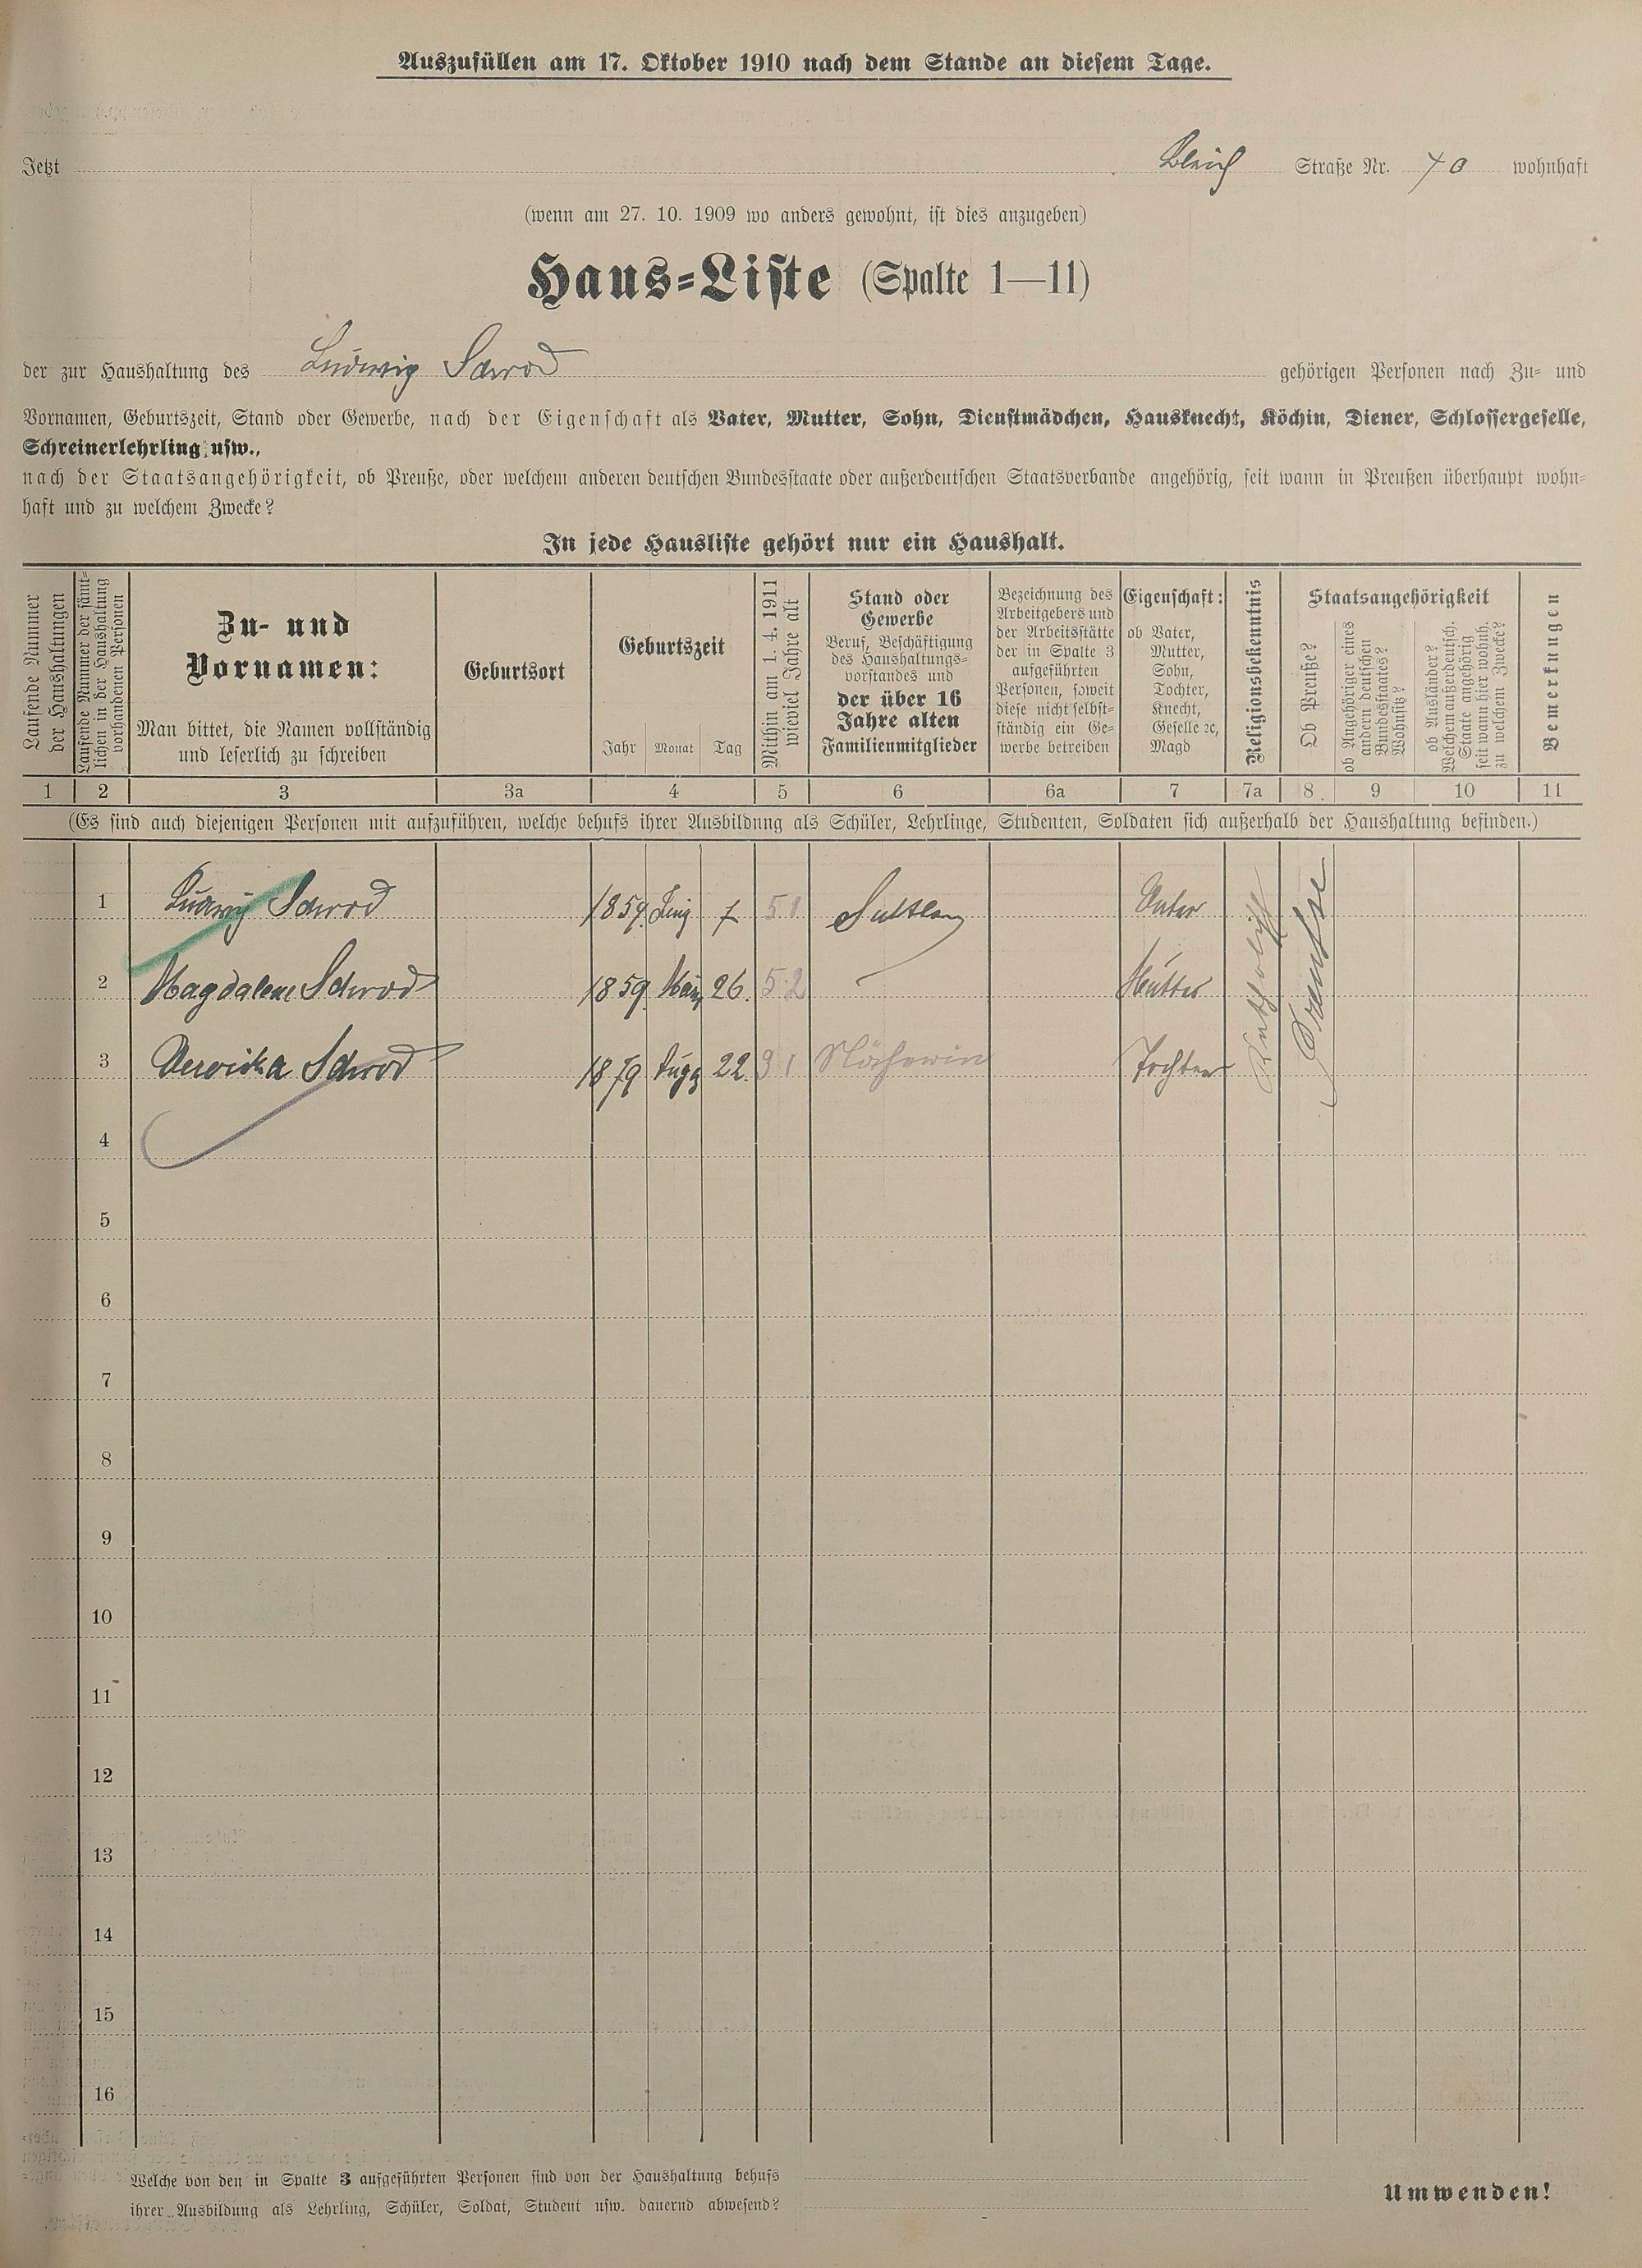 Auszufüllen am 17. Oktober 1910 nach dem Stande an diesem Tage.
Jetzt Bleich Straße Nr. 40 wohnhaft
(wenn am 27. 10. 1909 wo anders gewohnt, ist dies anzugeben)
Haus-Liste (Spalte 1—11)
der zur Haushaltung des Ludwig Schrod gehörigen Personen nach Zu- und
Vornamen, Geburtszeit, Stand oder Gewerbe, nach der Eigenschaft als Vater, Mutter, Sohn, Dienstmädchen, Hausknecht, Köchin, Diener, Schlossergeselle,
Schreinerlehrling usw.,
nach der Staatsangehörigkeit, ob Preuße, oder welchem anderen deutschen Bundesstaate oder außerdeutschen Staatsverbande angehörig, seit wann in Preußen überhaupt wohn-
haft und zu welchem Zwecke?
In jede Hausliste gehört nur ein Haushalt.
Laufende Nummer
der Haushaltungen
Laufende Nummer der sämt-
lichen in der Haushaltung
vorhandenen Personen
Zu- und
Vornamen:
Man bittet, die Namen vollständig
und leserlich zu schreiben
Geburtsort
Geburtszeit
Jahr Monat Tag
Mithin am 1. 4. 1911
wieviel Jahre alt
Stand oder
Gewerbe
Beruf, Beschäftigung
des Haushaltungs-
vorstandes und
der über 16
Jahre alten
Familienmitglieder
Bezeichnung des
Arbeitgebers und
der Arbeitsstätte
der in Spalte 3
aufgeführten
Personen, soweit
diese nicht selbst-
ständig ein Ge-
werbe betreiben
Eigenschaft:
ob Vater,
Mutter,
Sohn,
Tochter,
Knecht,
Geselle ec,
Magd
Religionsbekenntnis
Staatsangehörigkeit
Ob Preuße?
ob Angehöriger eines
andern deutschen
Bundesstaates?
Wohnsitz?
ob Ausländer?
Welchem außerdeutsch.
Staate angehörig
seit wann hier wohnh.
zu welchem Zwecke?
Bemerkungen
1 2 3 3a 4 5 6 6a 7 7a 8 9 10 11
(Es sind auch diejenigen Personen mit aufzuführen, welche behufs ihrer Ausbildung als Schüler, Lehrlinge, Studenten, Soldaten sich außerhalb der Haushaltung befinden.)
1 Ludwig Schrod 1859 Juny 7 51 Vater Katholisch Preuße
2 Magdalene Schrod 1859 März 26. 52 Mutter
3 Schrod 1879 22. 31 Näherin Tochter
4
5
6
7
8
9
10
11
12
13
14
15
16
Welche von den in Spalte 3 aufgeführten Personen sind von der Haushaltung behufs
ihrer Ausbildung als Lehrling, Schüler, Soldat, Student usw. dauernd abwesend?
Umwenden!